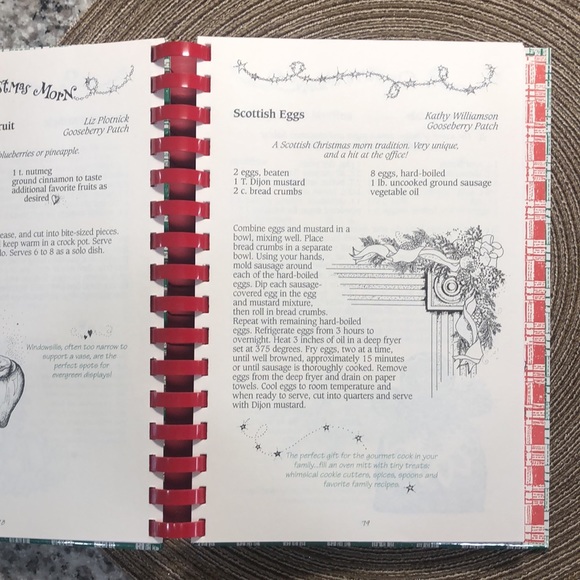 stmas Morn
ruit
Liz Plotnick
Gooseberry Patch
blueberries or pineapple.
1 t. nutmeg
ground cinnamon to taste
additional favorite fruits as
desired
ease, and cut into bite-sized pieces.
keep warm in a crock pot. Serve
lo. Serves 6 to 8 as a solo dish.
Windowsills, often too narrow to
support a vase, are the
perfect spots for
evergreen displays!
Scottish Eggs
Kathy Williamson
Gooseberry Patch
A Scottish Christmas morn tradition. Very unique,
and a hit at the office!
2 eggs, beaten
1 T. Dijon mustard
2 c. bread crumbs
8 eggs, hard-boiled
1 lb. uncooked ground sausage
vegetable oil
Combine eggs and mustard in a
bowl, mixing well. Place
bread crumbs in a separate
bowl. Using your hands,
mold sausage around
each of the hard-boiled
eggs. Dip each sausage-
covered egg in the egg
and mustard mixture,
then roll in bread crumbs.
Repeat with remaining hard-boiled
eggs. Refrigerate eggs from 3 hours to
overnight. Heat 3 inches of oil in a deep fryer
set at 375 degrees. Fry eggs, two at a time,
until well browned, approximately 15 minutes
or until sausage is thoroughly cooked. Remove
eggs from the deep fryer and drain on paper
towels. Cool eggs to room temperature and
when ready to serve, cut into quarters and serve
with Dijon mustard.
The perfect gift for the gourmet cook in your
family...fill an oven mitt with tiny treats:
whimsical cookie cutters, spices, spoons and
favorite family recipes.